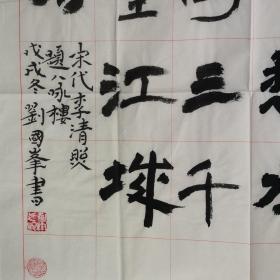 三千
江城
宋代李清照
題八咏樓
戊戌冬劉國峯書